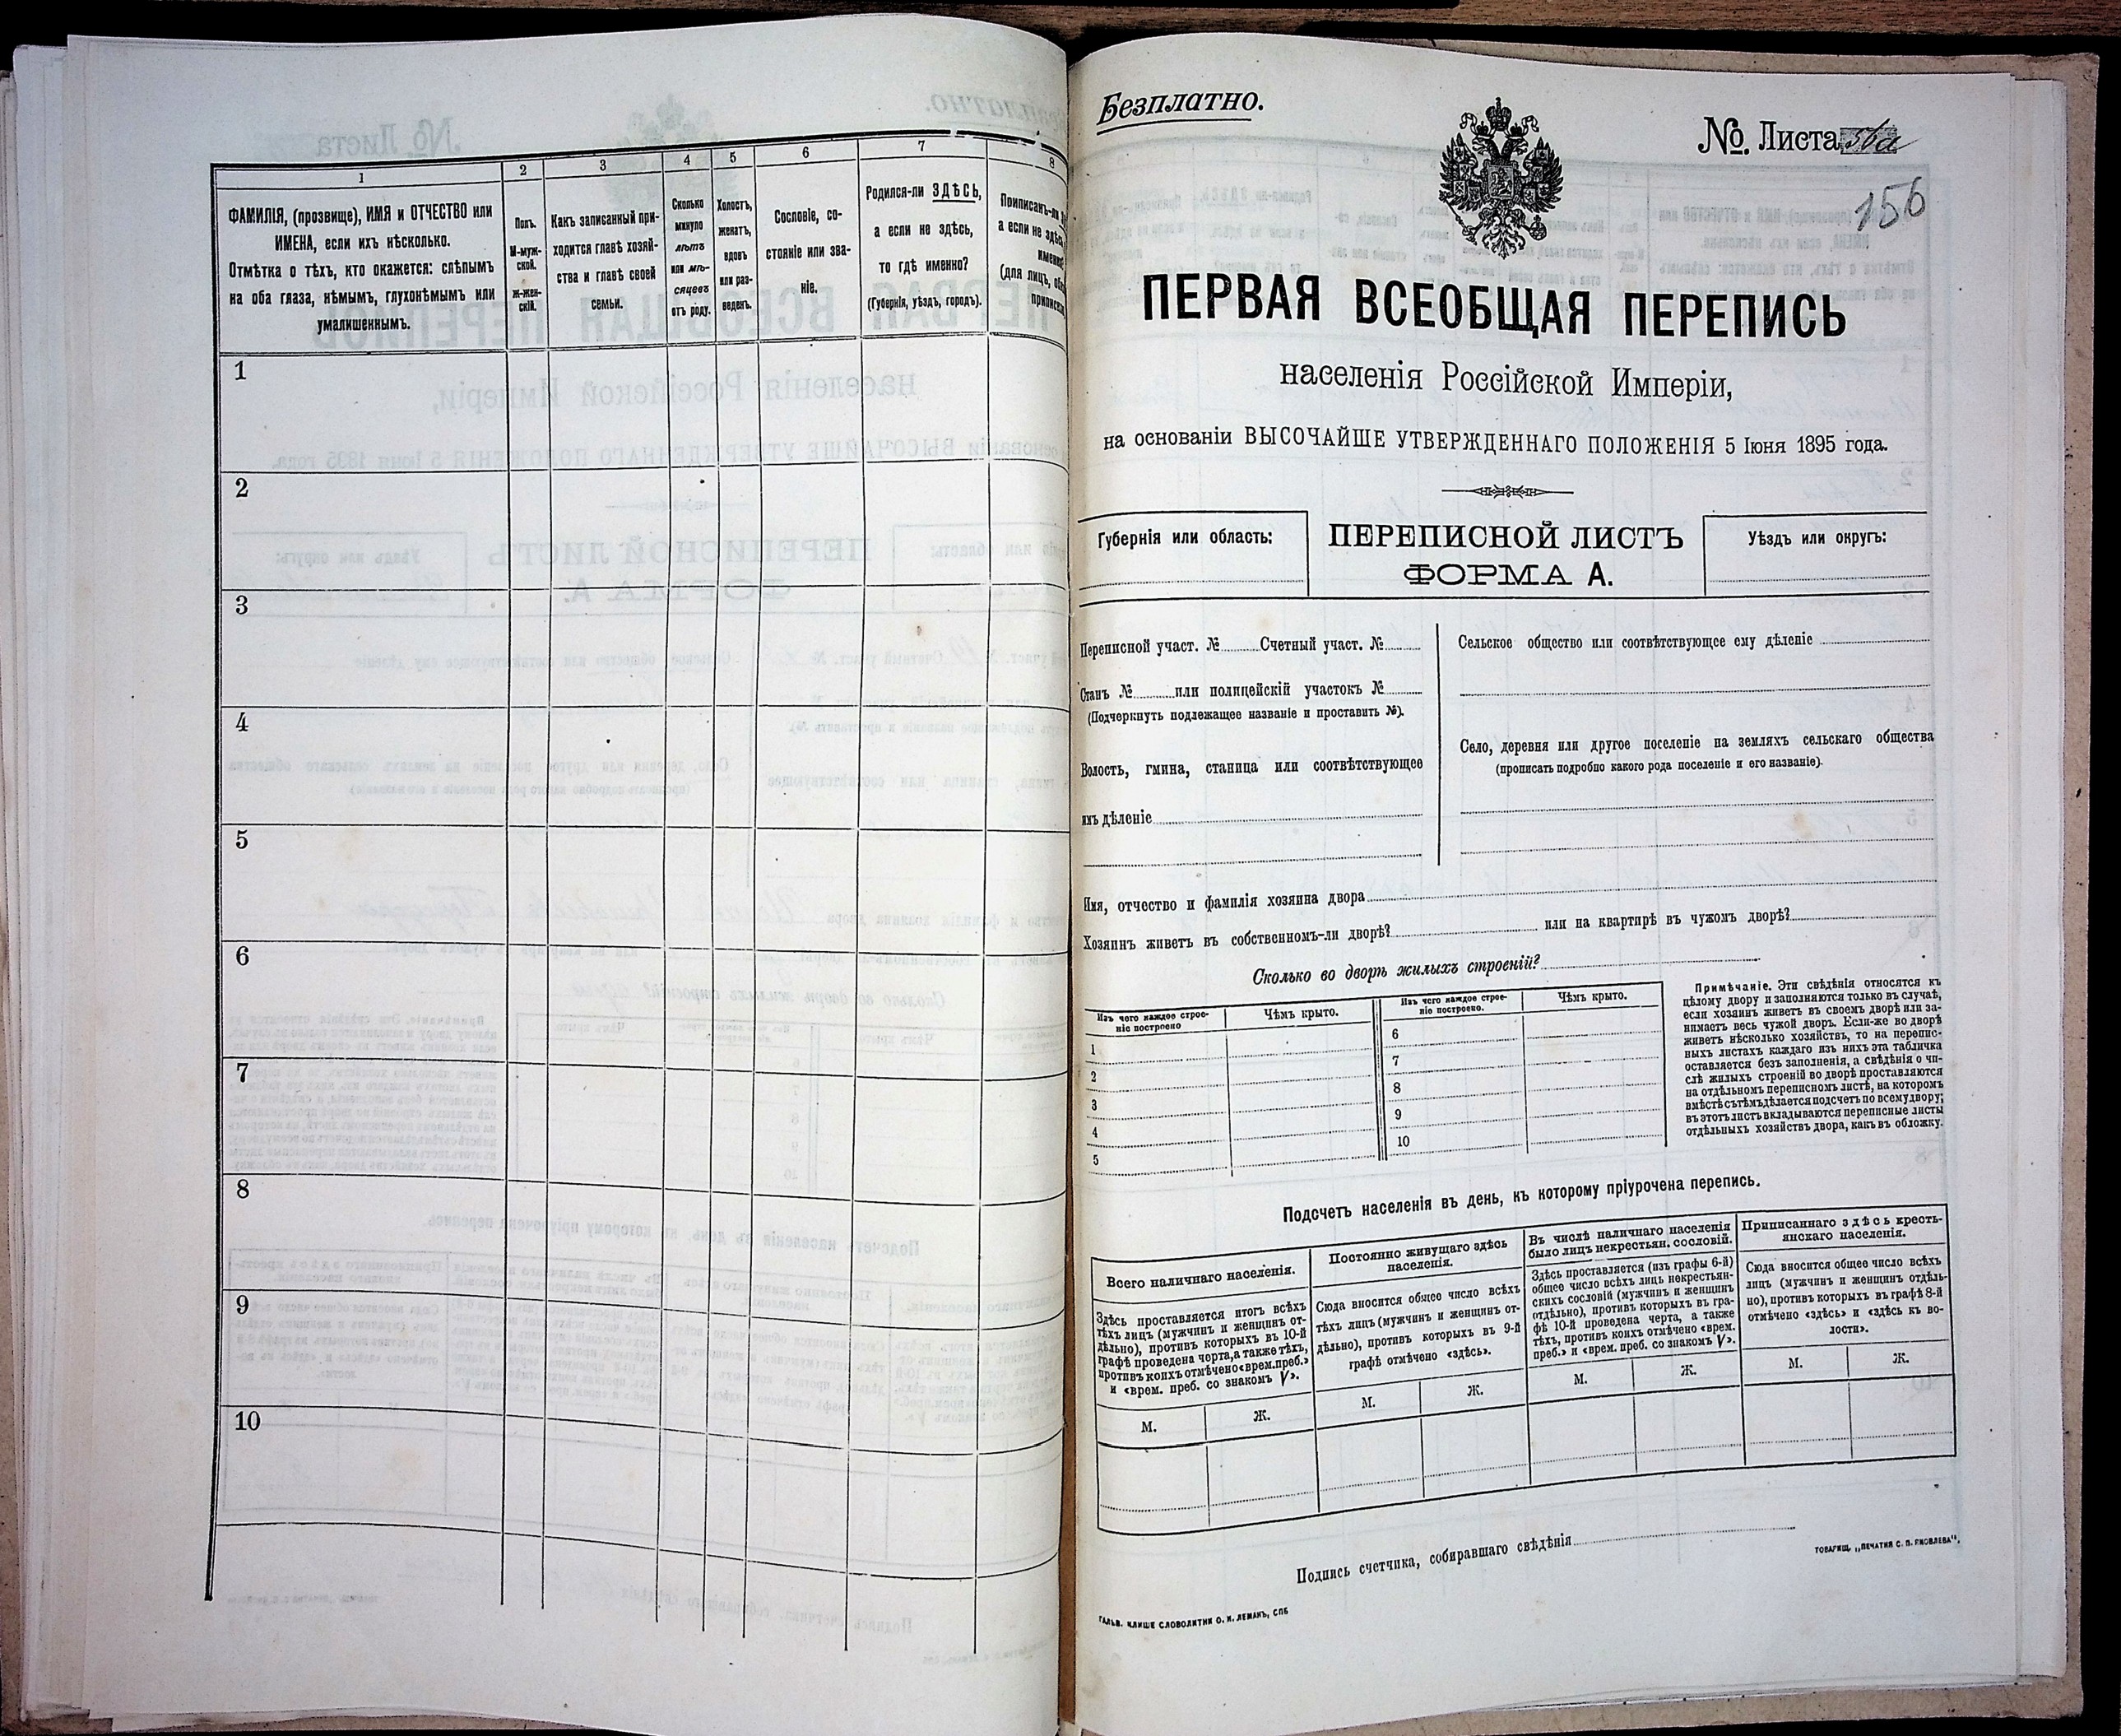 1 2 3 4 5 6 7 8
ФАМИЛІЯ, (прозвище), ИМЯ и ОТЧЕСТВО или
ИМЕНА, если ихъ нѣсколько.
Отмѣтка о тѣхъ, кто окажется: слѣпымъ
на оба глаза, нѣмымъ, глухонѣмымъ или
умалишеннымъ.
Полъ.
М-муж-
ской.
Ж-жен-
скій.
Какъ записанный при-
ходится главѣ хозяй-
ства и главѣ своей
семьи.
Сколько
минуло
лѣтъ
или мѣ-
сяцевъ
отъ роду.
Холостъ,
женатъ,
вдовъ
или раз-
веденъ.
Сословіе, со-
стояніе или зва-
ніе.
Родился-ли ЗДѢСЬ,
а если не здѣсь,
то гдѣ именно?
(Губернія, уѣздъ, городъ).
Приписанъ-ли
а если не здѣсь
именно
(для лицъ,
1
2
3
4
5
6
7
8
9
10
Безплатно.
№. Листа 56а
156
ПЕРВАЯ ВСЕОБЩАЯ ПЕРЕПИСЬ
населенія Россійской Имперіи,
на основаніи ВЫСОЧАЙШЕ УТВЕРЖДЕННАГО ПОЛОЖЕНІЯ 5 Іюня 1895 года.
Губернія или область:
ПЕРЕПИСНОЙ ЛИСТЪ
ФОРМА А.
Уѣздъ или округъ:
Переписной участ. № Счетный участ. №
Станъ № или полицейскій участокъ №
(Подчеркнуть подлежащее названіе и проставить №).
Волость, гмина, станица или соотвѣтствующее
имъ дѣленіе
Сельское общество или соотвѣтствующее ему дѣленіе
Село, деревня или другое поселеніе на земляхъ сельскаго общества
(прописать подробно какого рода поселеніе и его названіе).
Имя, отчество и фамилія хозяина двора
Хозяинъ живетъ въ собственномъ-ли дворѣ? или на квартирѣ въ чужомъ дворѣ?
Сколько во дворѣ жилыхъ строеній?
Изъ чего каждое строе-
ніе построено
Чѣмъ крыто.
Изъ чего каждое строе-
ніе построено.
Чѣмъ крыто.
1
2
3
4
5
6
7
8
9
10
Примѣчаніе. Эти свѣдѣнія относятся къ
цѣлому двору и заполняются только въ случаѣ,
если хозяинъ живетъ въ своемъ дворѣ или за-
нимаетъ весь чужой дворъ. Если-же во дворѣ
живетъ нѣсколько хозяйствъ, то на перепис-
ныхъ листахъ каждаго изъ нихъ эта табличка
оставляется безъ заполненія, а свѣдѣнія о чи-
слѣ жилыхъ строеній во дворѣ проставляются
на отдѣльномъ переписномъ листѣ, на которомъ
вмѣстѣ съ тѣмъ дѣлается подсчетъ по всему двору;
въ этотъ листъ вкладываются переписные листы
отдѣльныхъ хозяйствъ двора, какъ въ обложку.
Подсчетъ населенія въ день, къ которому пріурочена перепись.
Всего наличнаго населенія.
Здѣсь проставляется итогъ всѣхъ
тѣхъ лицъ (мужчинъ и женщинъ от-
дѣльно), противъ которыхъ въ 10-й
графѣ проведена черта, а также тѣхъ,
противъ коихъ отмѣчено «врем. преб.»
и «врем. преб. со знакомъ V».
М. Ж.
Постоянно живущаго здѣсь
населенія.
Сюда вносится общее число всѣхъ
тѣхъ лицъ (мужчинъ и женщинъ от-
дѣльно), противъ которыхъ въ 9-й
графѣ отмѣчено «здѣсь».
М. Ж.
Въ числѣ наличнаго населенія
было лицъ некрестьян. сословій.
Здѣсь проставляется (изъ графы 6-й)
общее число всѣхъ лицъ некрестьян-
скихъ сословій (мужчинъ и женщинъ
отдѣльно), противъ которыхъ въ гра-
фѣ 10-й проведена черта, а также
тѣхъ, противъ коихъ отмѣчено «врем.
преб.» и «врем. преб. со знакомъ V».
М. Ж.
Приписаннаго здѣсь кресть-
янскаго населенія.
Сюда вносится общее число всѣхъ
лицъ (мужчинъ и женщинъ отдѣль-
но), противъ которыхъ въ графѣ 8-й
отмѣчено «здѣсь» и «здѣсь къ во-
лости».
М. Ж.
Подпись счетчика, собиравшаго свѣдѣнія
ТОВАРИЩ. „ПЕЧАТНЯ С. П. ЯКОВЛЕВА".
ГАЛЬВ. КЛИШЕ СЛОВОЛИТНИ О. И. ЛЕМАНЪ, СПБ